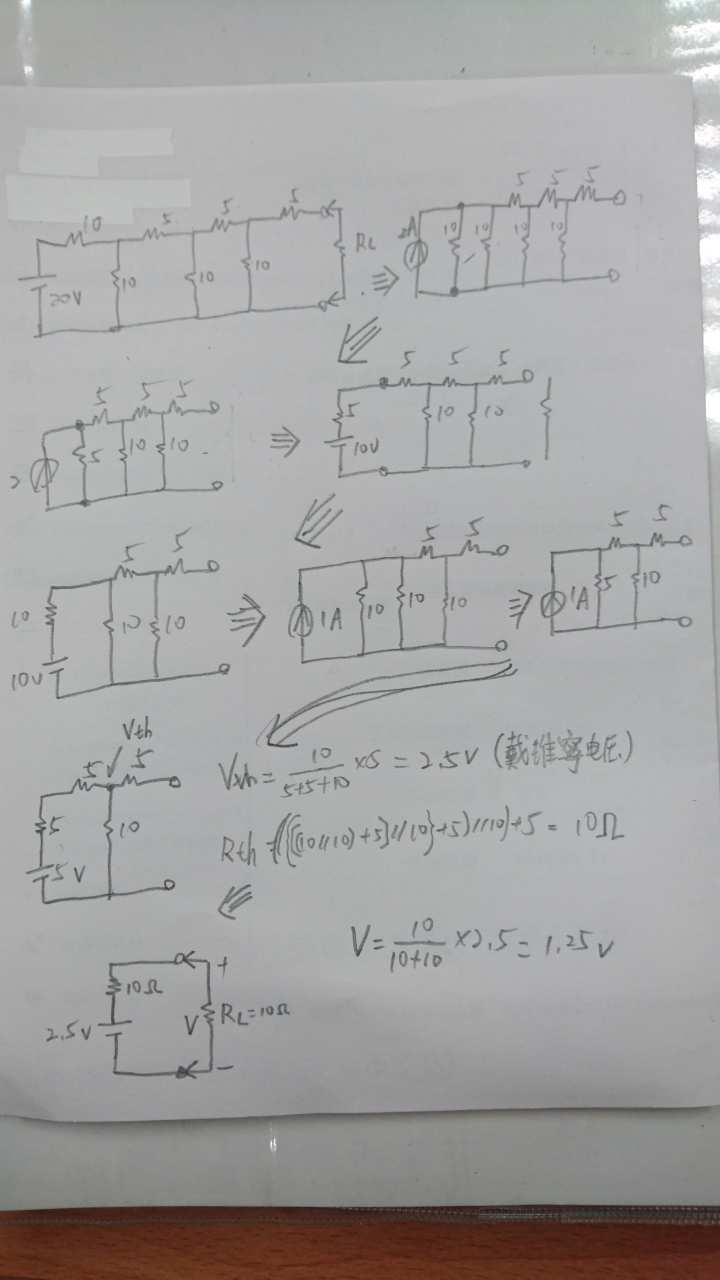 10 5 5 5
20V 10 10 10 RL
5 5 5
2A 10 10 10 10
5 5 5
2 5 10 10
5 5 5
5 10V 10 10
5 5
10 10V 10 10
5 5
1A 10 10 10
5 5
1A 5 10
Vth
5 5
5 10
5V
Vth = 10/(5+5+10) ×5 = 2.5V (戴維寧電压)
Rth = {{[(10//10)+5]//10}+5)//10}+5 = 10Ω
V = 10/(10+10) ×2.5 = 1.25V
10Ω +
2.5V V RL=10Ω
−